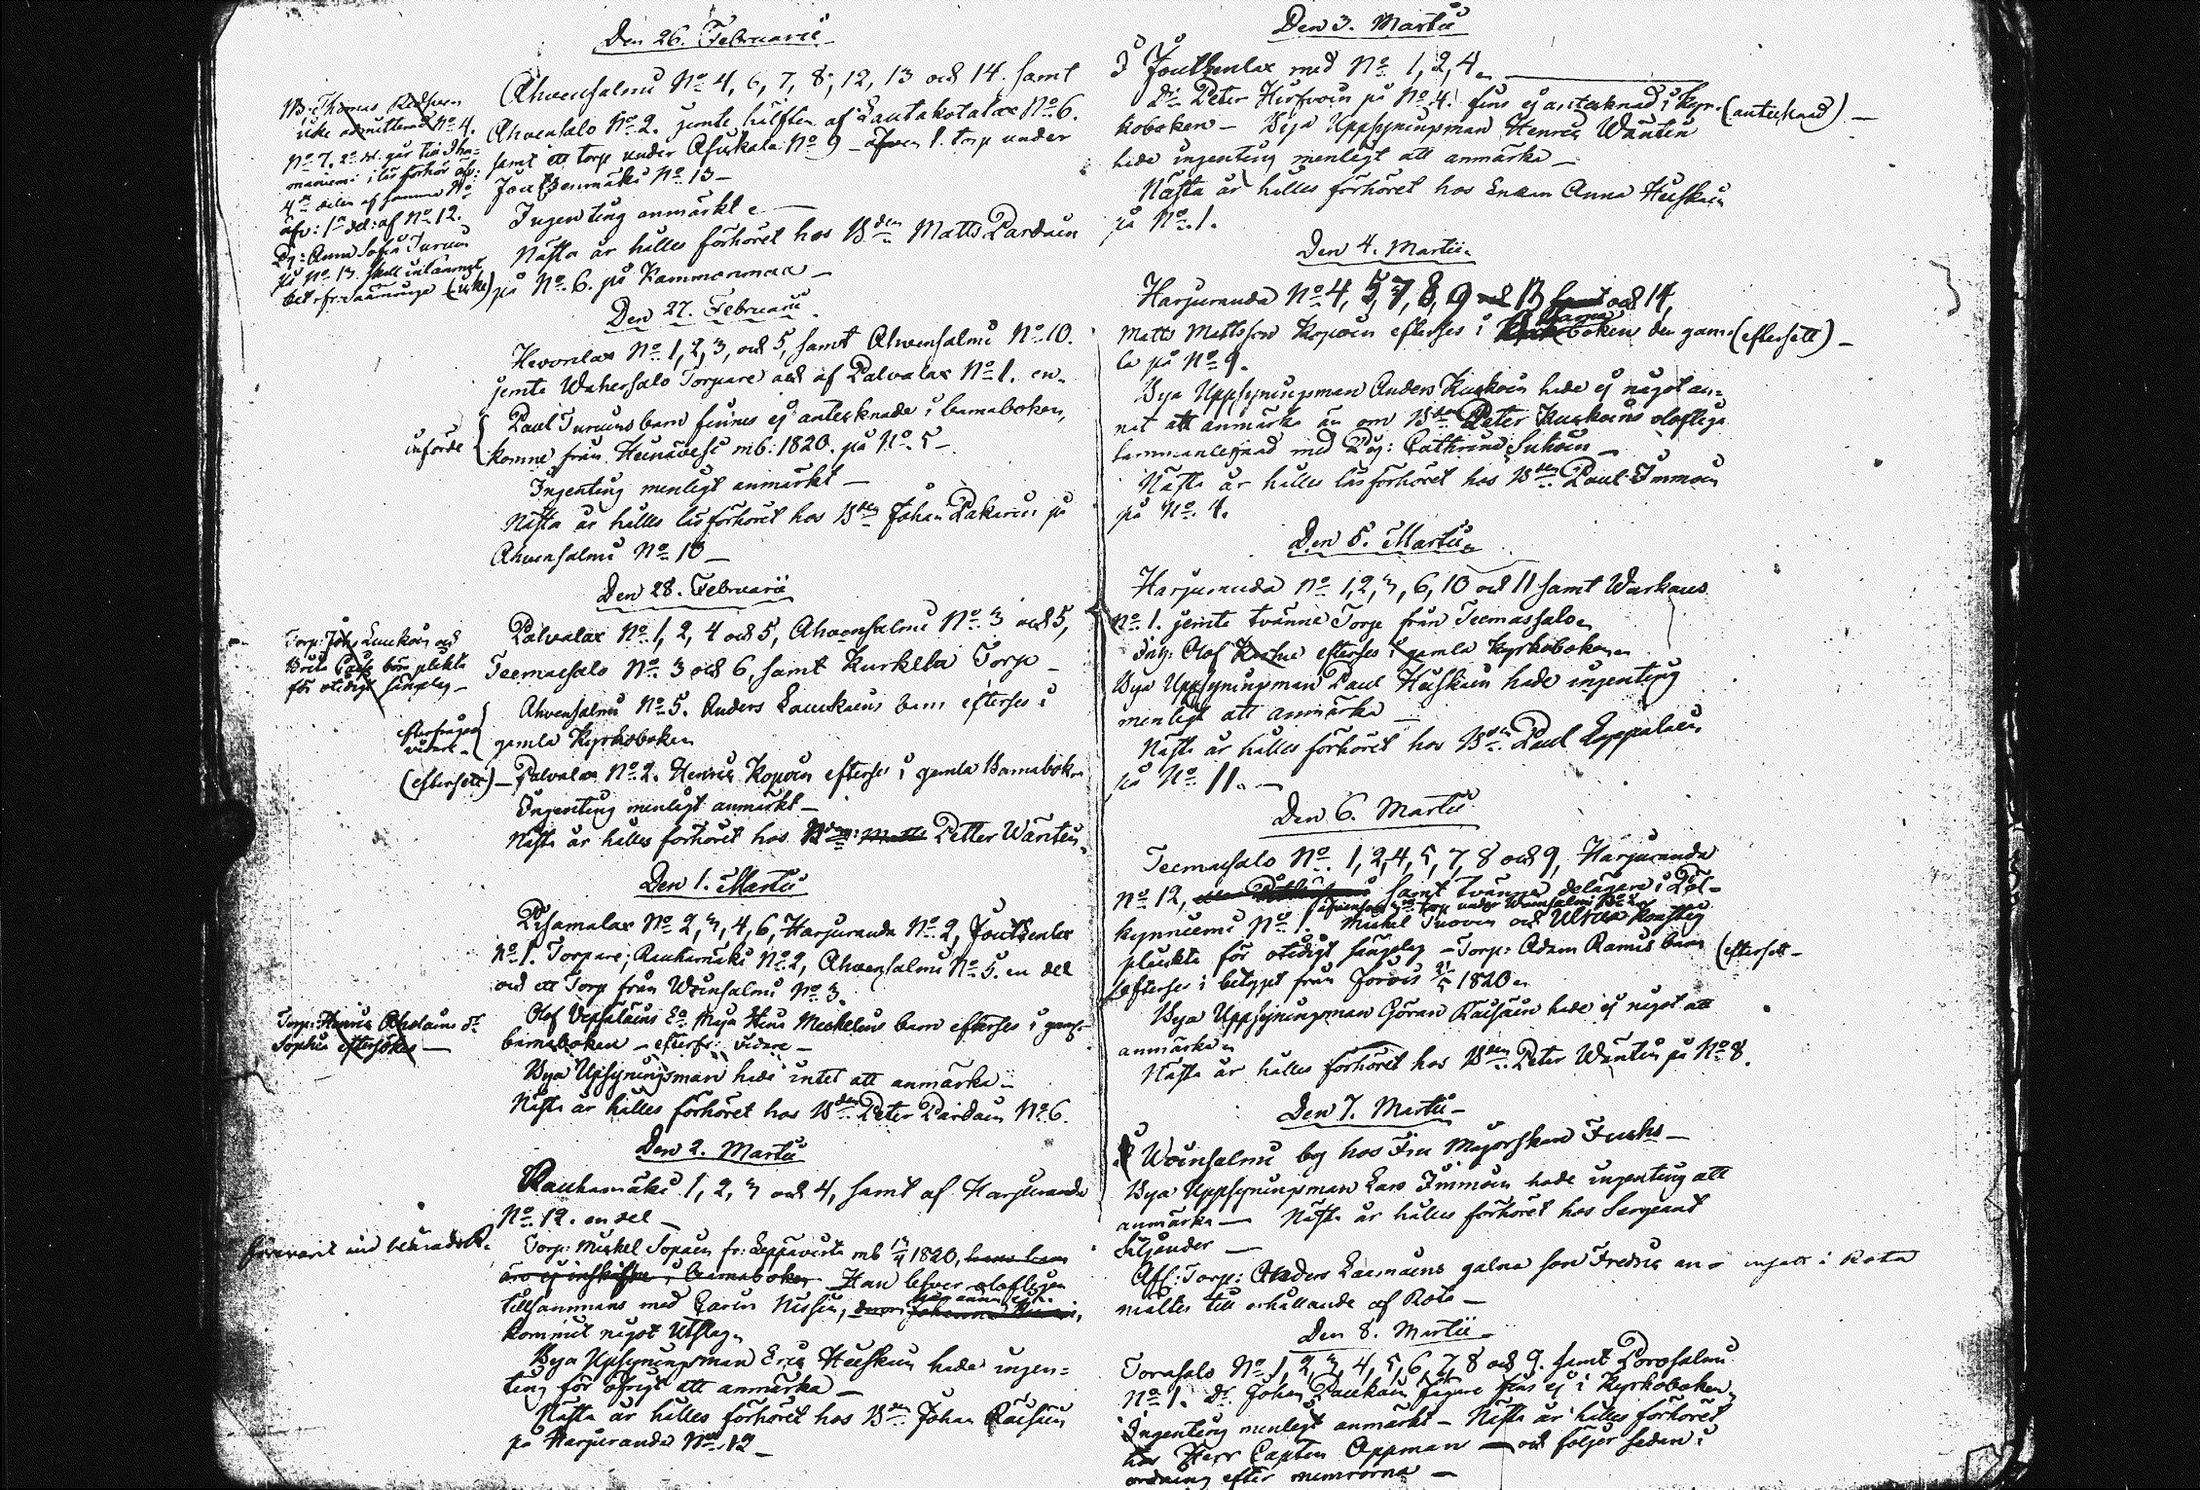 Den 26. Februarii
Ahvensalmi No 4, 6, 7, 8, 12, 13 och 14. samt
Ahvensalo No 2. jemte hälften af Lautakotalax No 6.
samt ett torp under Asukala No 9 – 1. torp under
Joutsenmäki No 13 –
Ingenting anmärkt –
Nästa år hålles förhöret hos Bden Matts Pardain
på No 6. på
NB. Thomas
icke admitterad No 4.
No 7. 2a del. går til
4de delen af samma No
äfv: 1a del: af No 12.
Pig: Anna Sofia Turuin
på No 13. skall
Den 27. Februarii
Hevonlax No 1, 2, 3, och 5, samt Ahvensalmi No 10.
jemte Wahersalo Torpare och af Palvalax No 1. en.
införde
Paul Turuins barn finnes ej antecknade i barnaboken,
komne från Heinävesi mb: 1820. på No 5 –
Ingenting menligt anmärkt –
Nästa år hålles läsförhöret hos Bden Johan Pakarin på
Ahvensalmi No 10 –
Den 28. Februarii
Palvalax No 1, 2, 4 och 5, Ahvensalmi No 3 och 5,
Teemassalo No 3 och 6, samt Kurkela Torp –
Torp: Joh: Laukain och
Brita böra plikta
för otidigt sänglag –
Ahvensalmi No 5. Anders Laukains barn efterses i
gamla Kyrkoboken
efterfrågas
vidare –
(eftersett) – Palvalax No 2. Henric Kopoin efterses i gamla Barnabok.
Ingenting menligt anmärkt –
Nästa år hålles förhöret hos Bden Matts Petter Wänten.
Den 1. Martii
Pisamalax No 2, 3, 4, 6, Harjuranda No 2, Joutsenlax
No 1. Torpare; Rauhamäki No 2, Ahvensalmi No 5. en del
och ett Torp från Woinsalmi No 3.
Olof Vepsäläins Ea Maja Heikelins barn efterses i gamla
barnaboken – efterfr: vidare –
Torp: Henric Aholains dr
Sophia eftersökes –
Bya Upsyningsman hade intet att anmärka –
Nästa år hålles förhöret hos Bden Peter Pardain No 6.
Den 2. Martii
Rauhamäki 1, 2, 3 och 4, samt af Harjuranda
No 12. en del –
Torp: Mickel Sopain fr: Leppävirta mb 1820, hans barn
äro ej inskrifne i barnaboken Han lefver olofligen
tillsammans med Carin Nissin,
kommit något Utslag.
Bya Upsyningsman Eric Heiskain hade ingen=
ting för öfrigt att anmärka –
Nästa år hålles förhöret hos Bden Johan Räisäin
på Harjuranda No 12 –
Den 3. Martii
I Joutsenlax med No 1, 2, 4.
Dr Peter Hirfvoin på No 4. fins ej antecknad i Kyr- (antecknad) –
koboken – Bya Uppsyningsman Henric Wäntin
hade ingenting menligt att anmärka –
Nästa år hålles förhöret hos Enkan Anna Heiskain
på No 1.
Den 4. Martii
Harjuranda No 4, 5, 7, 8, 9 och 13 samt och 14,
Matts Mattsson Kopoin efterses i barnaboken den gam- (eftersett) –
la på No 9.
Bya Uppsyningsman Anders Kurkoin hade ej något an-
nat att anmärka än om Bden Peter Kurkoins olofliga
sammanlefnad med Pig: Cathrina Suhoin –
Nästa år hålles läsförhöret hos Bden Paul Immoin
på No 4.
Den 5. Martii
Harjuranda No 1, 2, 3, 6, 10 och 11 samt Warkaus
No 1. jemte tvänne Torp från Teemassalo
Inh: Olof efterses i gamla Kyrkoboken
Bya Uppsyningsman Paul Heiskain hade ingenting
menligt att anmärka –
Nästa år hålles förhöret hos Bden Paul Loppalain
på No 11. –
Den 6. Martii
Teemassalo No 1, 2, 4, 5, 7, 8 och 9, Harjuranda
No 12, samt tvänne delägare i Pol-
kynniemi No 1. Mickel Tuovin och Ulrica
pleikta för otidigt sänglag – Torp: Adam Ramus barn (eftersett –
efterses i betyget från Jorois 1820
Bya Uppsyningsman Göran Räisäin hade ej något att
anmärka
Nästa år hålles förhöret hos Bden Peter Wäntin på No 8.
Den 7. Martii –
I Woinsalmi by hos Fru Majorskan Fuchs –
Bya Uppsyningsman Lars Immoin hade ingenting att
anmärka – Nästa år hålles förhöret hos Sergeant
Siljander –
Afl: Torp: Anders Laamains galna son Fredric an-
mältes till erhållande af Rote –
Den 8. Martii
Torasalo No 1, 2, 3, 4, 5, 6, 7, 8 och 9. samt Porosalmi
No 1. Dr Johan Laukain fins ej i Kyrkoboken,
Ingenting menligt anmärkt – Nästa år hålles förhöret
hos Herr Capten Oppman – och följer sedan i
ordning efter numrorna –